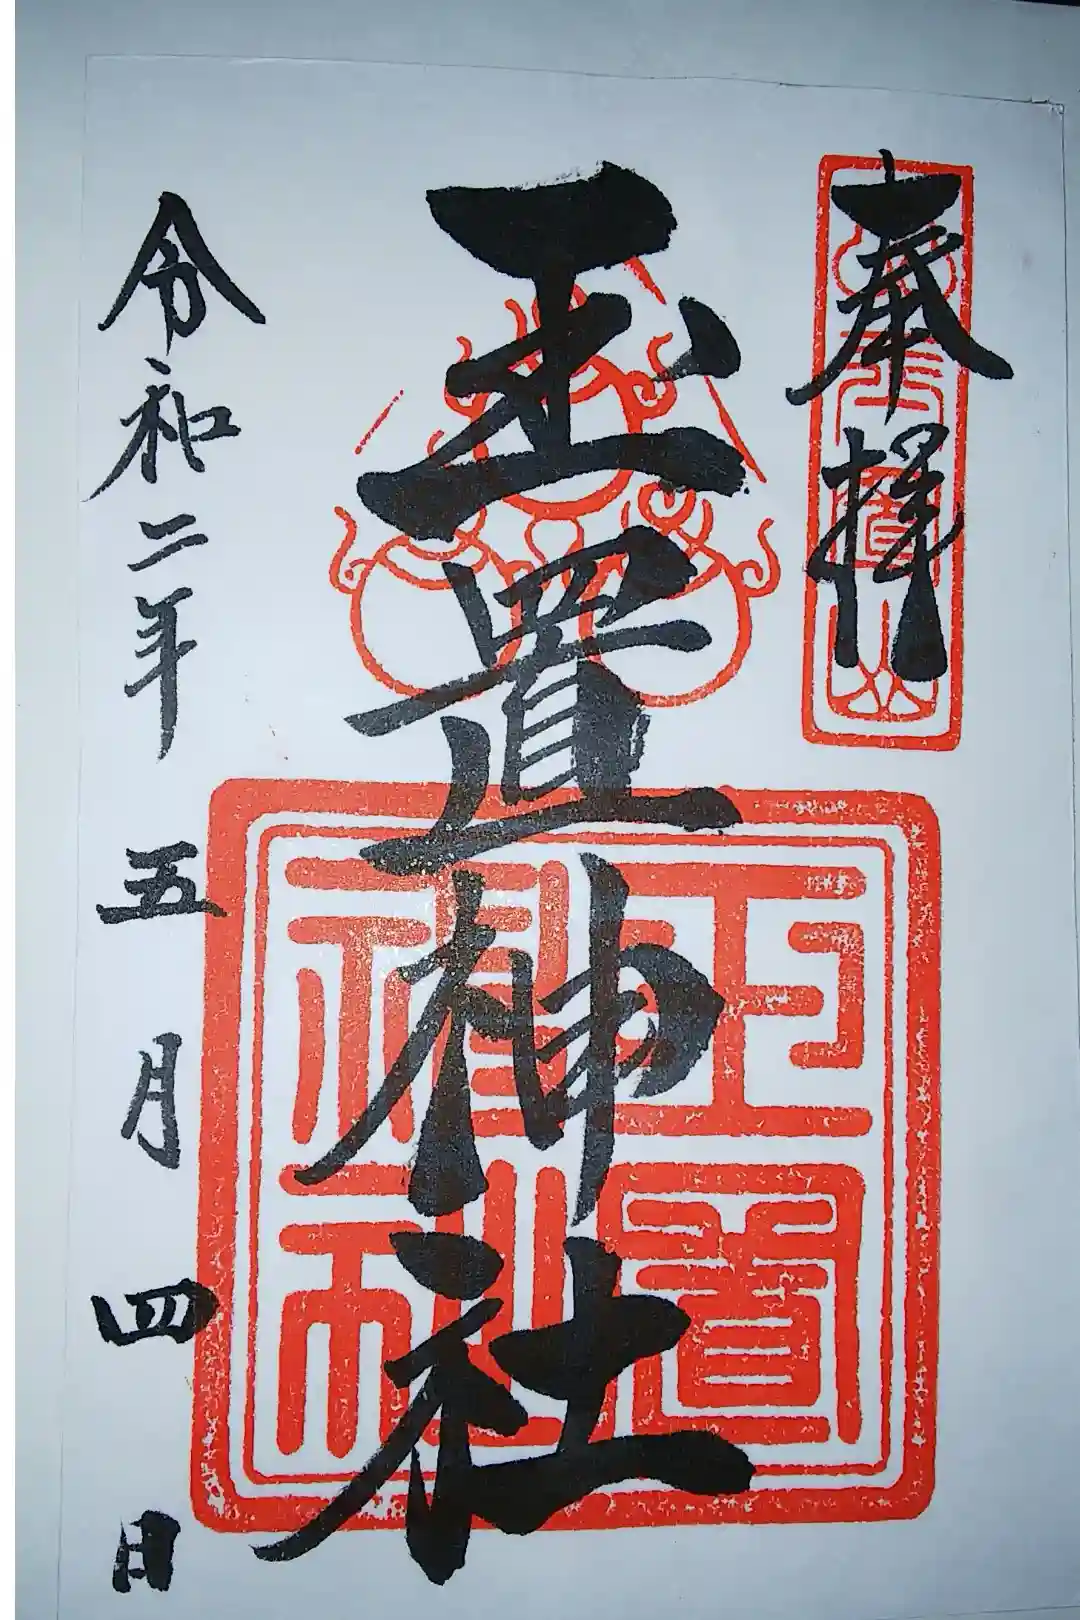 奉拝
玉置山
玉置神社
玉置神社
令和二年五月四日